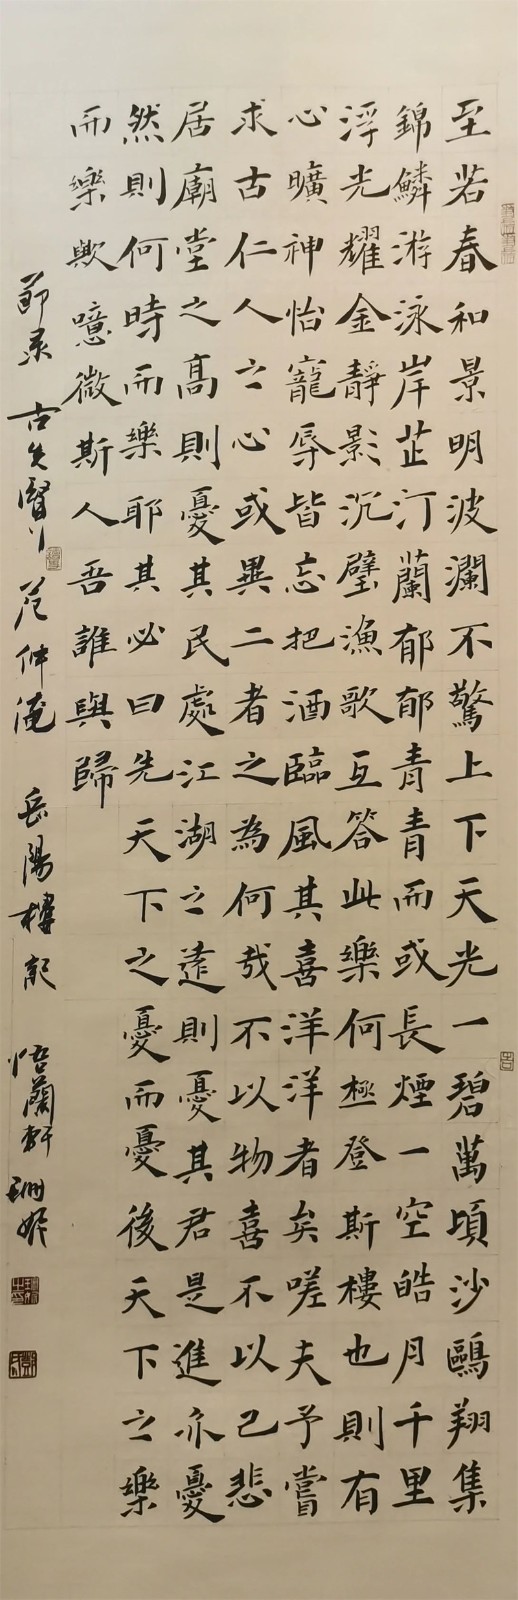 至若春和景明波瀾不驚上下天光一碧萬頃沙鷗翔集
錦鱗游泳岸芷汀蘭郁郁青青而或長煙一空皓月千里
浮光耀金靜影沉璧漁歌互答此樂何極登斯樓也則有
心曠神怡寵辱皆忘把酒臨風其喜洋洋者矣嗟夫予嘗
求古仁人之心或異二者之為何哉不以物喜不以己悲
居廟堂之高則憂其民處江湖之遠則憂其君是進亦憂
然則何時而樂耶其必曰先天下之憂而憂後天下之樂
而樂歟噫微斯人吾誰與歸
節录古先賢范仲淹岳陽樓記悟蘭軒